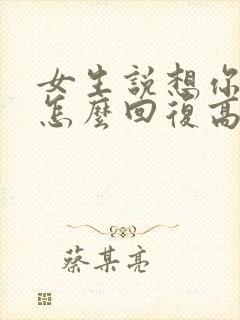 女生説想你
怎麼回復高
蔡某亮